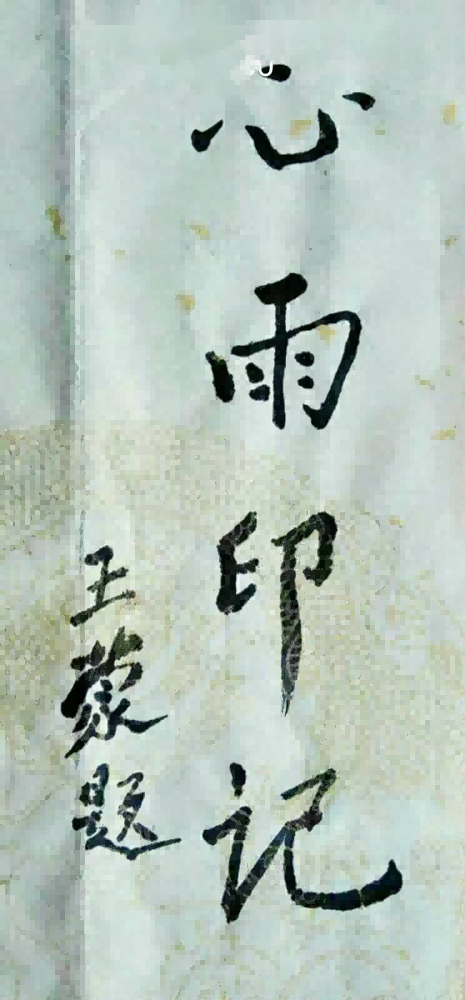 心雨印记
王蒙题